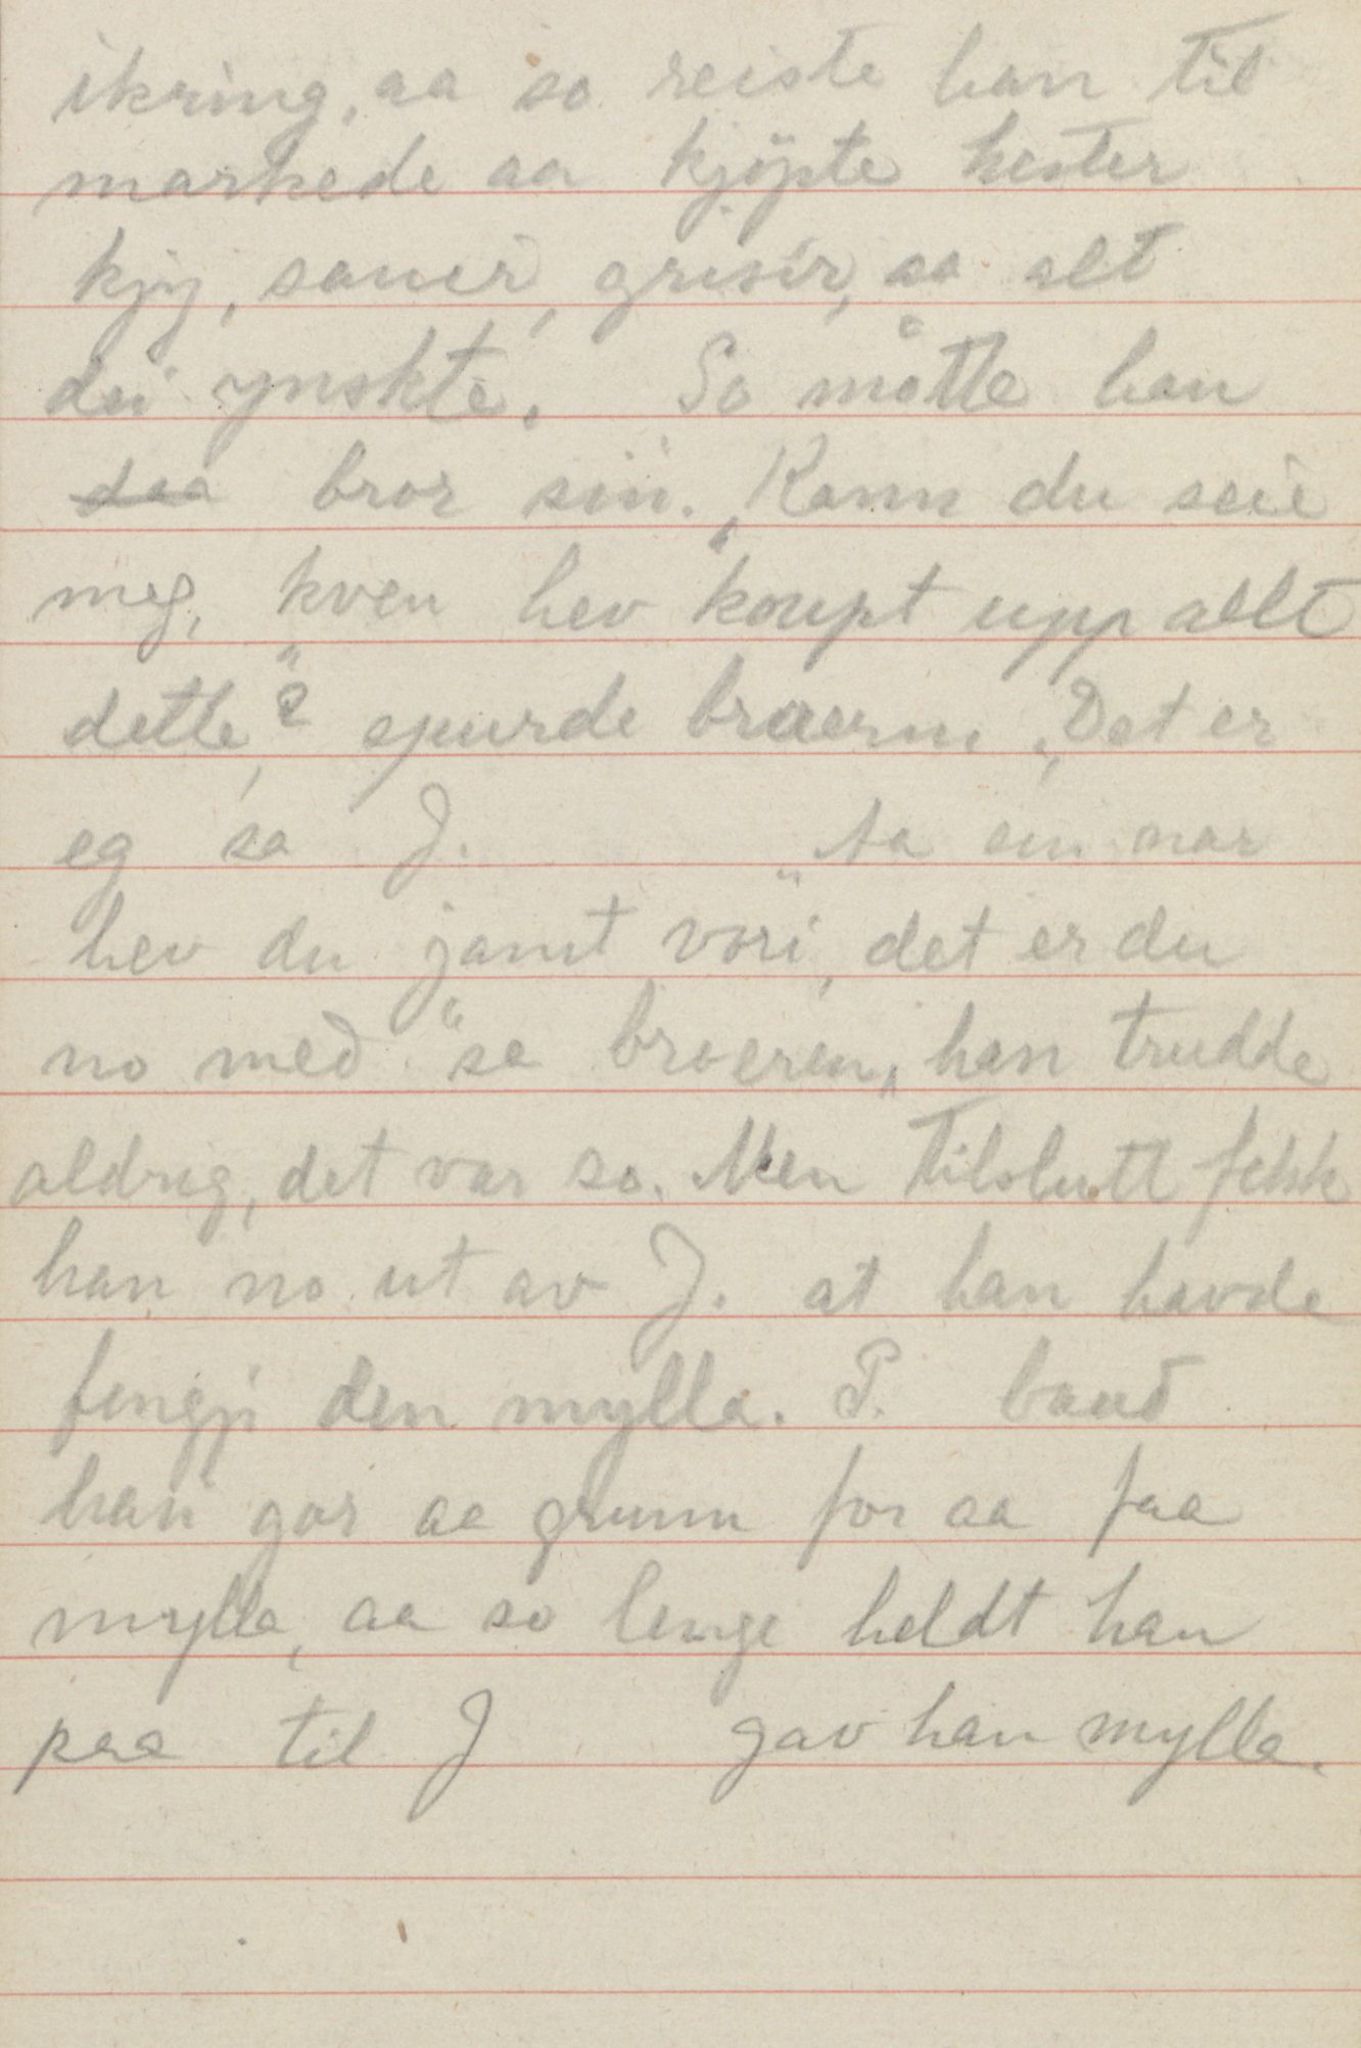 ikring, aa so reiste han til
markede aa kjöpte hester
kjyj, sauer, griser, aa alt
dei ynskte. So måtte han
daa bror sin. „Kann du seie
meg, kven hev koupt upp allt
dette“?, spurde broern. „Det er
eg sa J. „Aa ein nar
hev du jamt vori, det er du
no med“ sa broeren, han trudde
aldrig, det var so. Men tilslutt fekk
han no ut av J. at han havde
fengji den mylla. P. baud
han gar aa grunn for aa faa
mylla, aa so lenge heldt han
paa til J gav han mylla.